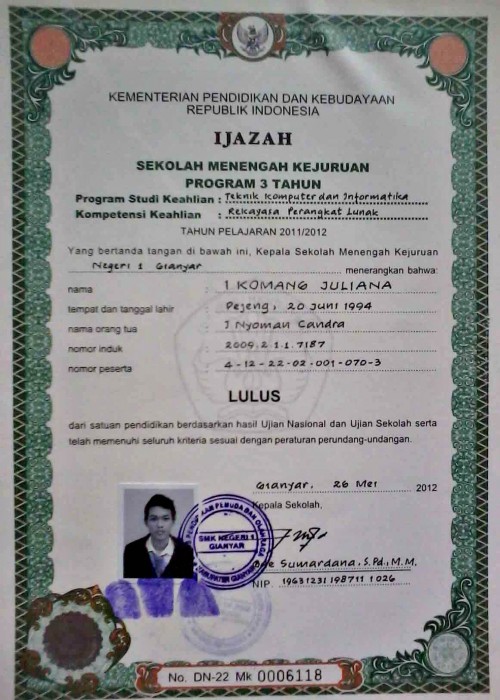 KEMENTERIAN PENDIDIKAN DAN KEBUDAYAAN
REPUBLIK INDONESIA
IJAZAH
SEKOLAH MENENGAH KEJURUAN
PROGRAM 3 TAHUN
Program Studi Keahlian : Teknik Komputer dan Informatika
Kompetensi Keahlian : Rekayasa Perangkat Lunak
TAHUN PELAJARAN 2011/2012
Yang bertanda tangan di bawah ini, Kepala Sekolah Menengah Kejuruan
Negeri 1 Gianyar menerangkan bahwa:
nama : I KOMANG JULIANA
tempat dan tanggal lahir : Pejeng, 20 Juni 1994
nama orang tua : I Nyoman Candra
nomor induk : 2009.2.1.1.7187
nomor peserta : 4-12-22-02-001-070-3
LULUS
dari satuan pendidikan berdasarkan hasil Ujian Nasional dan Ujian Sekolah serta
telah memenuhi seluruh kriteria sesuai dengan peraturan perundang-undangan.
Gianyar, 26 Mei 2012
Kepala Sekolah,
PENDIDIKAN PEMUDA DAN OLAHRAGA
SMK NEGERI 1
GIANYAR
KABUPATEN GIANYAR
Sumardana, S.Pd., M.M.
NIP. 19631231 198711 1 026
No. DN-22 Mk 0006118